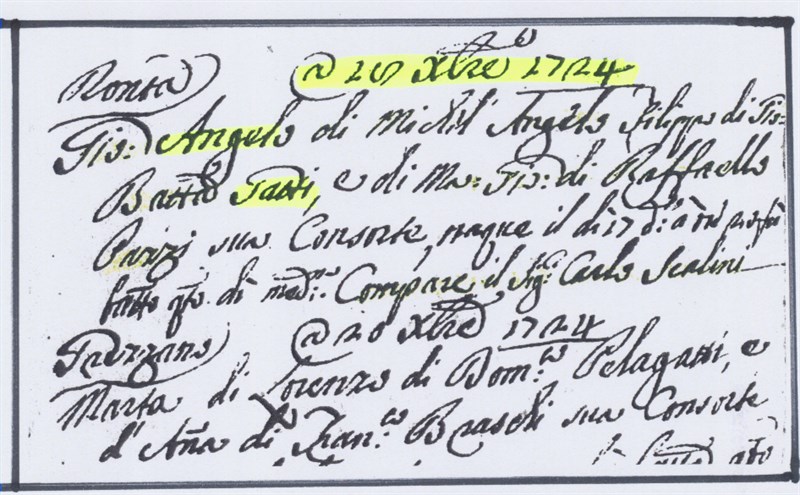 Ronta
a 20 Xbre 1724
Gio: Angelo di Michel' Angelo Filippo di Gio:
Batta Tatti, e di Ma: Gio: di Raffaello
Parzi sua Consorte, naque il dì 17 d:
batto qto dì medmo. Compare il Sigr Carlo Scalini
a 20 Xbre 1724
Marta di Lorenzo di Domco Pelagatti, e
d'Anna di Franco Braschi sua Consorte